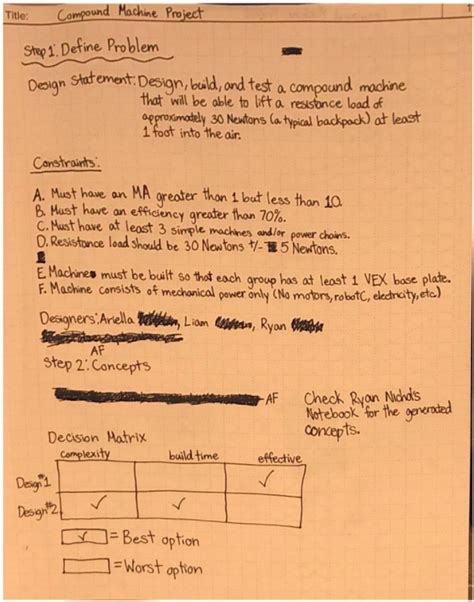 Title: Compound Machine Project
Step 1: Define Problem
Design Statement: Design, build, and test a compound machine
that will be able to lift a resistance load of
approximately 30 Newtons (a typical backpack) at least
1 foot into the air.
Constraints:
A. Must have an MA greater than 1 but less than 10.
B. Must have an efficiency greater than 70%.
C. Must have at least 3 simple machines and/or power chains.
D. Resistance load should be 30 Newtons +/- 5 Newtons.
E. Machines must be built so that each group has at least 1 VEX base plate.
F. Machine consists of mechanical power only (No motors, robotC, electricity, etc.)
Designers: Ariella, Liam, Ryan
AF
Step 2: Concepts
AF
Check Ryan Nichd's
Notebook for the generated
concepts.
Decision Matrix
complexity build time effective
Design #1 ✓
Design #2 ✓ ✓
✓ = Best option
= Worst option